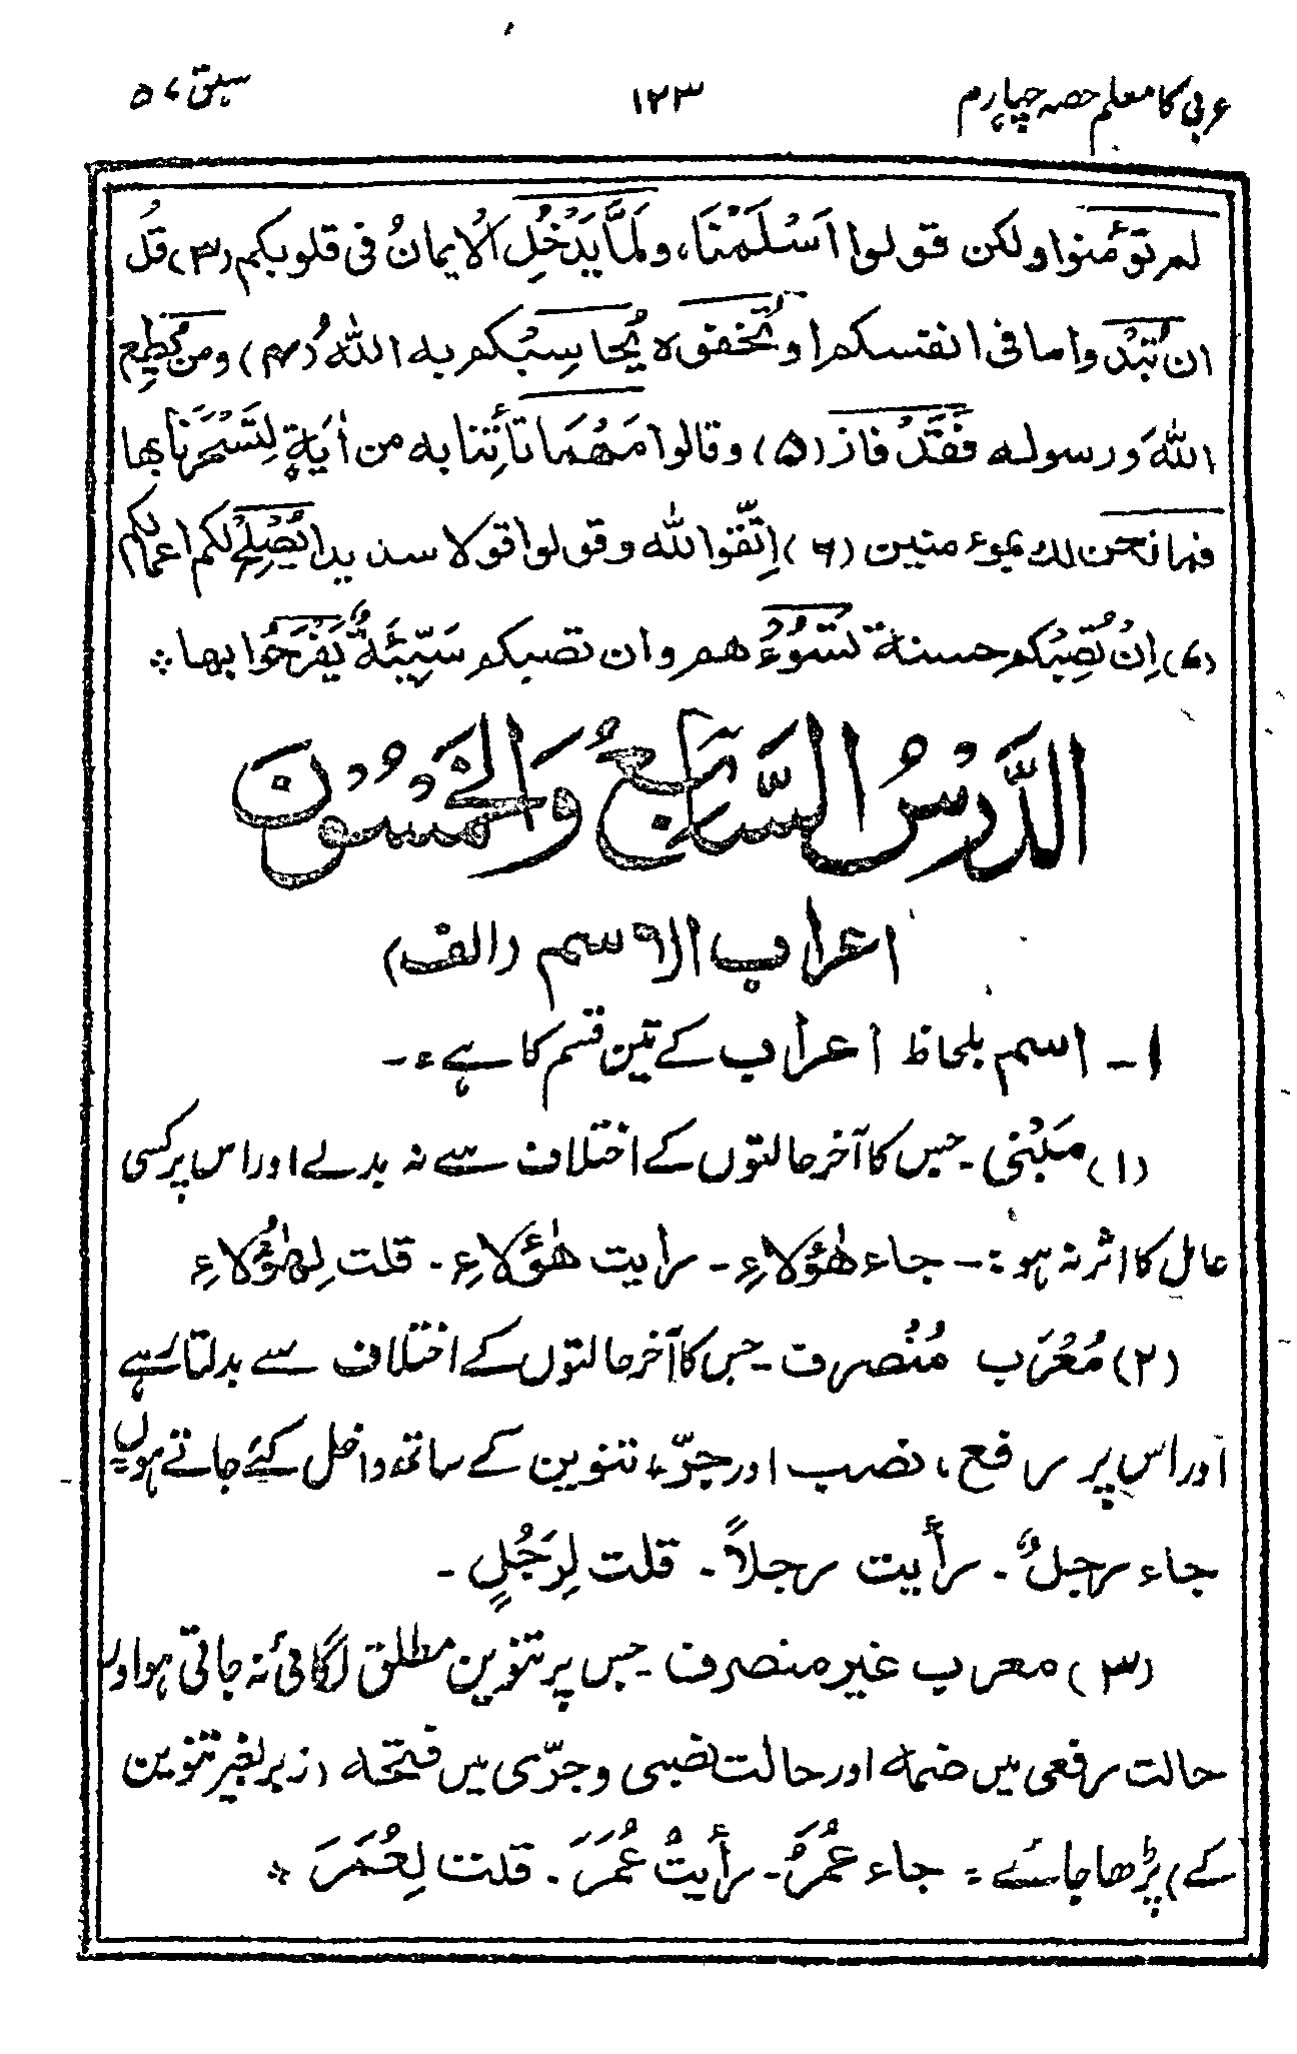 عربی کا معلم حصہ چہارم ۱۲۳ سبق ۵۷
لم تؤمنوا ولكن قولوا اَسْلَمْنَا، ولَمَّا يَدْخُلِ الْايمانُ فی قلوبكم (۳) قُل
ان تُبْدُوا ما فی انفسكم او تُخْفوْه يُحَاسِبْكم به اللهُ (۴) ومن يُّطِعِ
اللهَ ورسولـه فَقَدْ فاز (۵) وقالوا مَهْمَا تأتِنا به من اٰيَةٍ لِتَسْحَرَنَا بها
فما نحن لك بموءمنين (۶) اِتَّقوا لله وقولوا قولا سديدا يُصْلِحْ لكم اعمالكم
(۷) اِنْ تُصِبْكم حسنة تَسُؤْهم وان تصبكم سَيِّئَةٌ يَفْرَحُوا بها ؞
الدَّرْسُ السَّابِعُ وَالخَمْسُوْنَ
اعراب الاسم (الف)
۱۔ اسم بلحاظ اعراب کے تین قسم کا ہے:۔
(۱) مَبْنی۔ جس کا آخر حالتوں کے اختلاف سے نہ بدلے اور اس پر کسی
عامل کا اثر نہ ہو :۔ جاء هٰؤلاءِ۔ رایت هٰؤلاءِ۔ قلت لِهٰؤُلاءِ
(۲) مُعْرَب مُنْصرف۔ جس کا آخر حالتوں کے اختلاف سے بدلتا رہے
اور اس پر رفع، نصب اور جرّ، تنوین کے ساتھ داخل کئے جاتے ہوں
جاء رجلٌ۔ رأیت رجلاً۔ قلت لِرَجُلٍ۔
(۳) معرب غیر منصرف۔ جس پر تنوین مطلق لگائی نہ جاتی ہو اور
حالت رفعی میں ضمہ اور حالت نصبی و جرّی میں فتحہ (زبر بغیر تنوین
کے) پڑھا جائے : جاء عُمَرُ۔ رأیتُ عُمَرَ۔ قلت لِعُمَرَ ؞